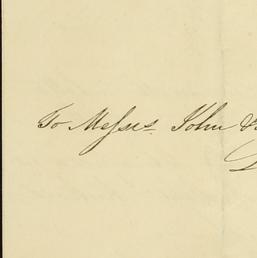 To Messrs. John &